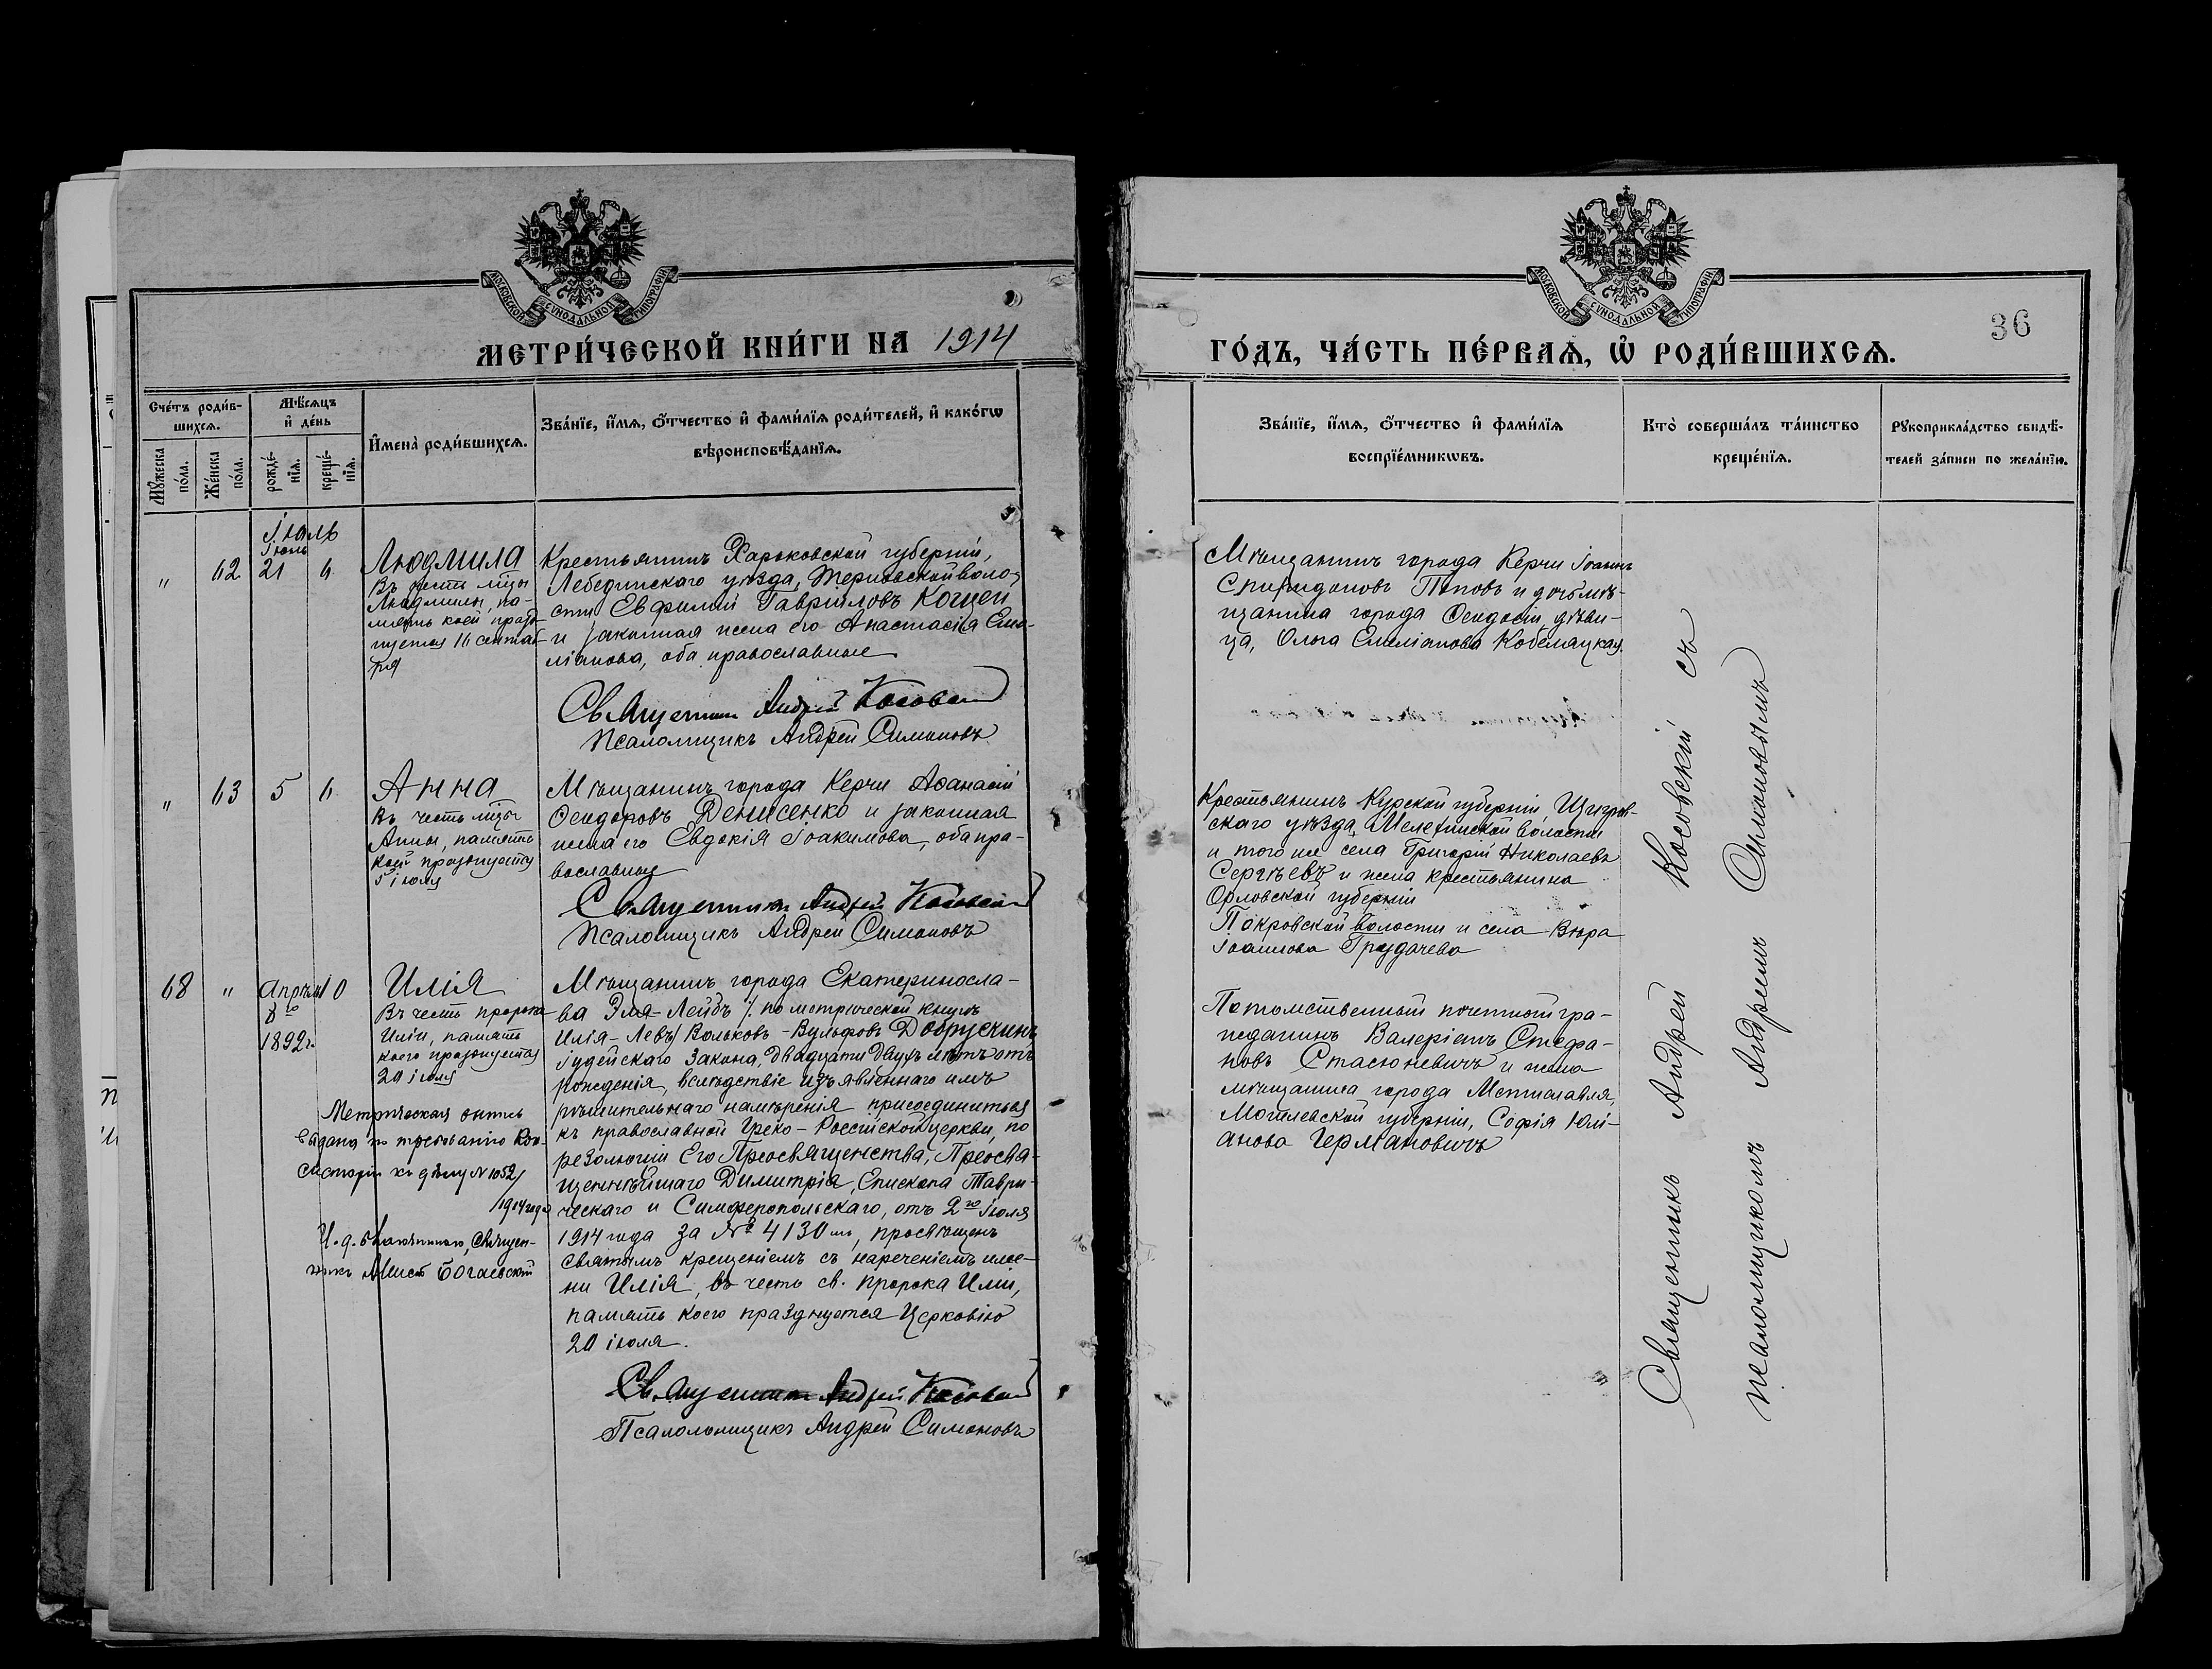 МОСКОВСКОЙ СУНОДАЛЬНОЙ ТИПОГРАФІИ
МЕТРИ́ЧЕСКОЙ КНИ́ГИ НА 1914
Сче́тъ роди́в-
шихсѧ.
Мѣ́сѧцъ
и҆ де́нь
Мꙋ́жеска
по́ла.
Же́нска
по́ла.
рожде́-
нїѧ.
креще́-
нїѧ.
И҆мена̀ роди́вшихсѧ.
Зва́нїе, и҆́мѧ, ѻ҆́тчество и҆ фами́лїѧ роди́телей, и҆ како́гѡ
вѣроисповѣ́данїѧ.
Іюль
Іюнь
" 62 21 6
Людмила
Въ честь м͠цы
Людмилы, па-
мять коей празд-
нуется 16 сентяб-
ря
Крестьянинъ Харьковской губерніи,
Лебединскаго уѣзда, Терновской воло-
сти Евфимій Гавріиловъ Кощей
и законная жена его Анастасія Еми-
ліанова, оба православные
Священникъ Андрей Косовскій
Псаломщикъ Андрей Симоновъ
" 63 5 6
Анна
Въ честь м͠цы
Анны, память
коей празднуется
5 іюля
Мѣщанинъ города Керчи Аѳанасій
Ѳеодоровъ Денисенко и законная
жена его Евдокія Іоакимова, оба пра-
вославные
Священникъ Андрей Косовскій
Псаломщикъ Андрей Симоновъ
68 " Апрѣля 10
8го
1892 г.
Илія
Въ честь пророка
Иліи, память
коего празднуется
20 іюля
Метрическая выпись
выдана по требованію Кон-
систоріи къ дѣлу № 1052/
1914 года
И. д. благочиннаго, Священ-
никъ Богаевскій
Мѣщанинъ города Екатериносла-
ва Эля-Лейбъ /: по метрической книгѣ
Илія-Левъ/ Вольковъ-Вульфовъ Добрускинъ
іудейскаго закона, двадцати двухъ лѣтъ отъ
рожденія, вслѣдствіе изъявленнаго имъ
рѣшительнаго намѣренія присоединиться
къ православной Греко-Россійской церкви, по
резолюціи Его Преосвященства, Преосвя-
щеннѣйшаго Димитрія, Епископа Таври-
ческаго и Симферопольскаго, отъ 2го іюля
1914 года за № 4130мъ, просвѣщенъ
святымъ крещеніемъ съ нареченіемъ име-
ни Илія, въ честь св. пророка Иліи,
память коего празднуется Церковію
20 іюля.
Священникъ Андрей Косовскій
Псаломщикъ Андрей Симоновъ
МОСКОВСКОЙ СУНОДАЛЬНОЙ ТИПОГРАФІИ
36
ГО́ДЪ, ЧА́СТЬ ПЕ́РВАѦ, Ѡ҆ РОДИ́ВШИХСѦ.
Зва́нїе, и҆́мѧ, ѻ҆́тчество и҆ фами́лїѧ
воспрїе́мникѡвъ.
Кто̀ соверша́лъ та́инство
креще́нїѧ.
Рꙋкоприкла́дство свидѣ́-
телей за́писи по жела́нїю.
Мѣщанинъ города Керчи Іоаннъ
Спиридоновъ Поповъ и дочь мѣ-
щанина города Ѳеодосіи, дѣви-
ца, Ольга Емиліанова Кобелацкая
Крестьянинъ Курской губерніи, Щигров-
скаго уѣзда, Мелехинской волости
и того же села Григорій Николаевъ
Сергѣевъ и жена крестьянина
Орловской губерніи
Покровской волости и села Вѣра
Іоаннова Груздачева
Потомственный почетный гра-
жданинъ Валеріанъ Стефа-
новъ Стасюневичъ и жена
мѣщанина города Мстиславля,
Могилевской губерніи, Софія Юлі-
анова Германовичъ
Священникъ Андрей Косовскій съ
псаломщикомъ Андреемъ Симоновымъ